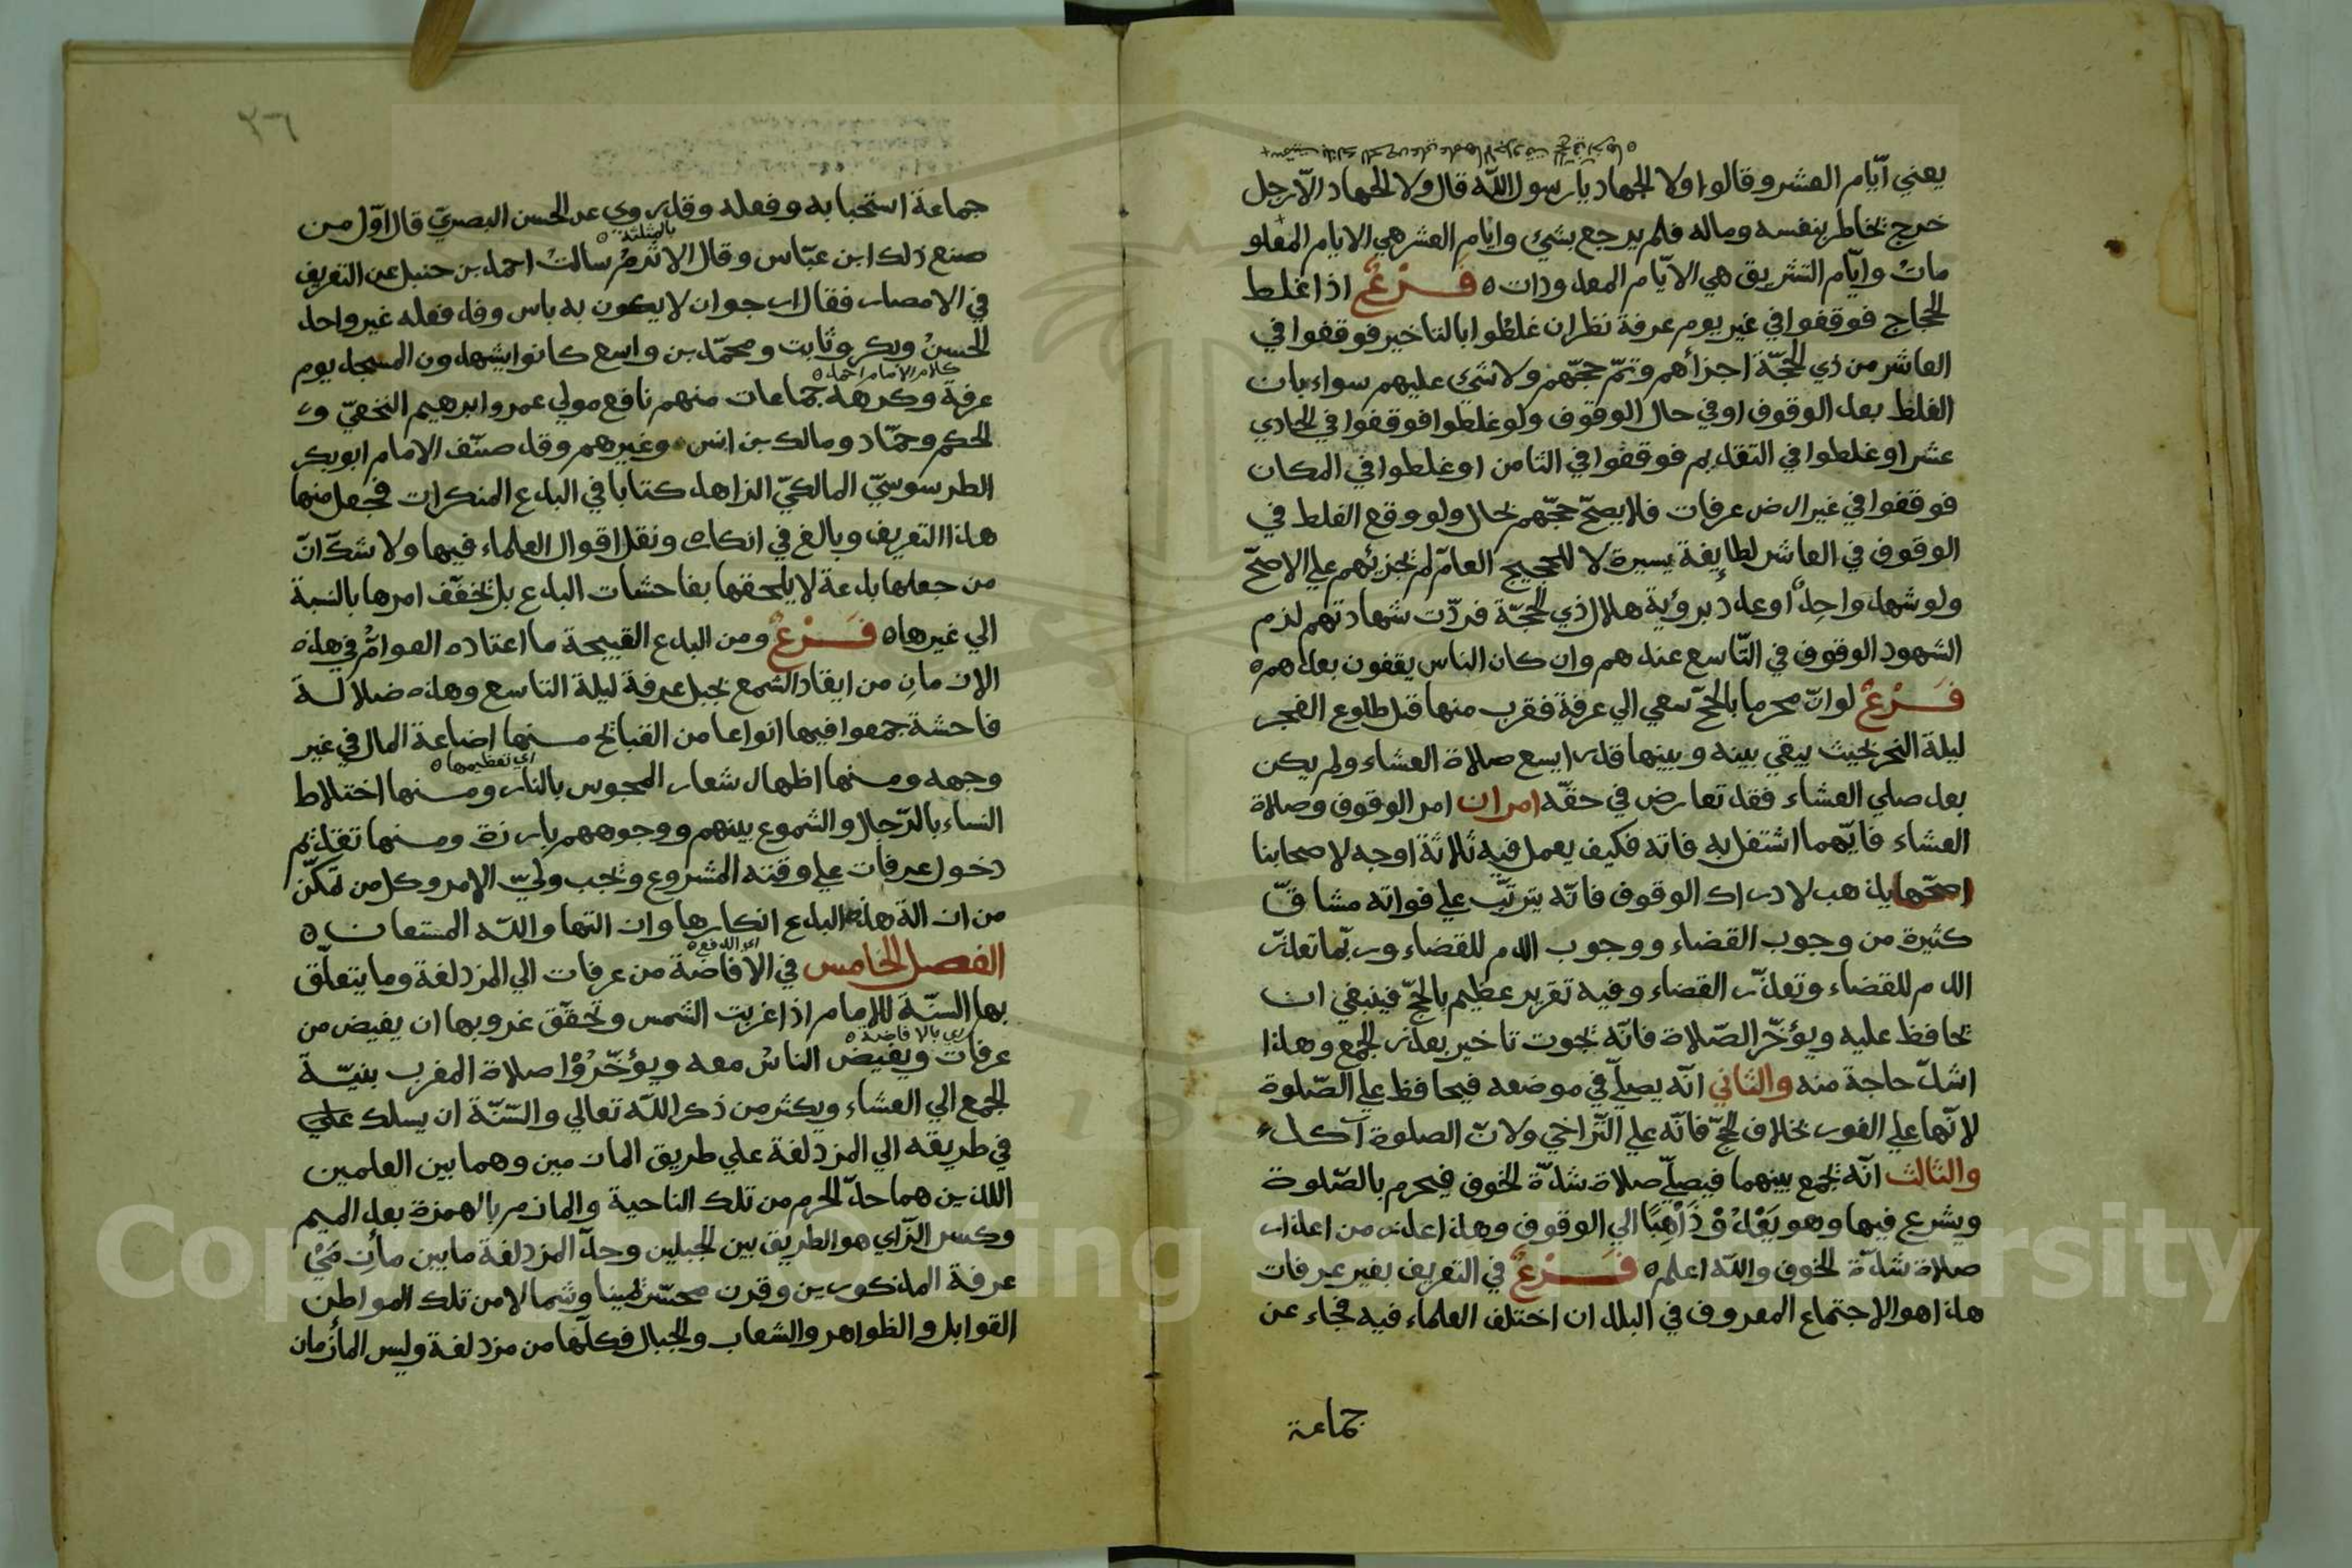 يعني ايّام العشر وقالوا ولا الجهاد يا رسول اللّه قال ولا الجهاد الّا رجل
خرج يخاطر بنفسه وماله فلم يرجع بشيء وايام العشر هي الايام المعلو
مات وايّام التشريق هي الايّام المعدودات ٥ فَرْعٌ اذا غلط
الحجاج فوقفوا في غير يوم عرفة نظر ان غلطوا بالتاخير فوقفوا في
العاشر من ذي الحجّة اجزأهم وتمّ حجّهم ولا شيء عليهم سواء بان
الغلط بعد الوقوف او في حال الوقوف ولو غلطوا فوقفوا في الحادي
عشر او غلطوا في التقديم فوقفوا في الثامن او غلطوا في المكان
فوقفوا في غير ارض عرفات فلا يصحّ حجّهم بحال ولو وقع الغلط في
الوقوف في العاشر لطايفة يسيرة لا للحجيج العامّ لم يجزئهم علي الاصحّ
ولو شهد واحدٌ او عدد برؤية هلال ذي الحجّة فردّت شهادتهم لزم
الشهود الوقوف في التّاسع عندهم وان كان الناس يقفون بعدهم ٥
فَرْعٌ لو انّ محرما بالحجّ سعي الي عرفة فقرب منها قبل طلوع الفجر
ليلة النحر بحيث يبقي بينه وبينها قدر ايسع صلاة العشاء ولم يكن
بعد صلي العشاء فقد تعارض في حقّه امران امر الوقوف وصلاة
العشاء فايّهما اشتغل به فاته فكيف يعمل فيه ثلاثة اوجه لاصحابنا
اصحّها يذهب لادراك الوقوف فانّه يترتّب علي فواته مشاقّ
كثيرة من وجوب القضاء ووجوب الدم للقضاء وربّما تعذّر
الدم للقضاء وتعذّر القضاء وفيه تغرير عظيم بالحجّ فينبغي ان
يحافظ عليه ويؤخّر الصّلاة فانّه يجوز تاخير بعذر الجمع وهذا
اشدّ حاجة منه والثاني انّه يصلّي في موضعه فيحافظ علي الصّلوة
لانّها علي الفور بخلاف الحجّ فانّه علي التّراخي ولانّ الصلوة آكد
والثالث انّه يجمع بينهما فيصلّي صلاة شدّة الخوف فيحرم بالصّلوة
ويشرع فيها وهو يَعْدُوْ ذَاهِبًا الي الوقوف وهذا عذر من اعذار
صلاة شدّة الخوف واللّه اعلم ٥ فَرْعٌ في التعريف بغير عرفات
هذا هو الاجتماع المعروف في البلدان اختلف العلماء فيه فجاء عن
جماعة
٣٦
جماعة استحبابه وفعله وقد روي عن الحسن البصريّ قال اوّل من
بالمثلثة ٥
صنع ذلك ابن عبّاس وقال الاثرمُ سالتُ احمد بن حنبل عن التعريف
في الامصار فقال ارجو ان لا يكون به باس وقد فعله غير واحد
الحسنُ وبكر وثابت ومحمّد بن واسع كانوا يشهدون المسجد يوم
كلام الامام احمد ٥
عرفة وكرهه جماعات منهم نافع مولي عمر وابرهيم النخعيّ و
الحكم وحمّاد ومالك بن انس وغيرهم وقد صنّف الامام ابو بكر
الطرسوسيّ المالكيّ الزاهد كتابا في البدع المنكرات فجعل منها
هذا التعريف وبالغ في انكاره ونقل اقوال العلماء فيها ولا شكّ انّ
من جعلها بدعة لا يلحقها بفاحشات البدع بل يخفّف امرها بالنسبة
الي غيرها ٥ فَرْعٌ ومن البدع القبيحة ما اعتاده العوامُّ في هذه
الازمان من ايقاد الشمع بجبل عرفة ليلة التاسع وهذه ضلالة
فاحشة جمعوا فيها انواعا من القبائح منها اضاعة المال في غير
اي تعظيمها ٥
وجهه ومنها اظهار شعار المجوس بالنار ومنها اختلاط
النساء بالرّجال والشموع بينهم ووجوههم بارزة ومنها تقديم
دخول عرفات علي وقته المشروع ويجب وليّ الامر وكل من تمكّن
من ازالة هذه البدع انكارها وازالتها واللّه المستعان ٥
اي الدفع ٥
الفصل الخامس في الافاضة من عرفات الي المزدلفة وما يتعلّق
بها السنّة للإمام اذا غربت الشمس وتحقّق غروبها ان يفيض من
اي بالافاضة ٥
عرفات ويفيض الناسُ معه ويؤخّرُوْا صلاة المغرب بنيّة
الجمع الي العشاء ويكثر من ذكر اللّه تعالي والسّنّة ان يسلك علي
في طريقه الي المزدلفة علي طريق المازمين وهما بين العلمين
اللذين هما حدّ الحرم من تلك الناحية والمازم بالهمزة بعد الميم
وكسر الزّاي هو الطريق بين الجبلين وحدّ المزدلفة ما بين مأزِمَيْ
عرفة المذكورين وقرن محسّر يمينا وشمالا من تلك المواطن
القوابل والظواهر والشعاب والجبال فكلّها من مزدلفة وليس المأزمان
Copyright © King Saud University